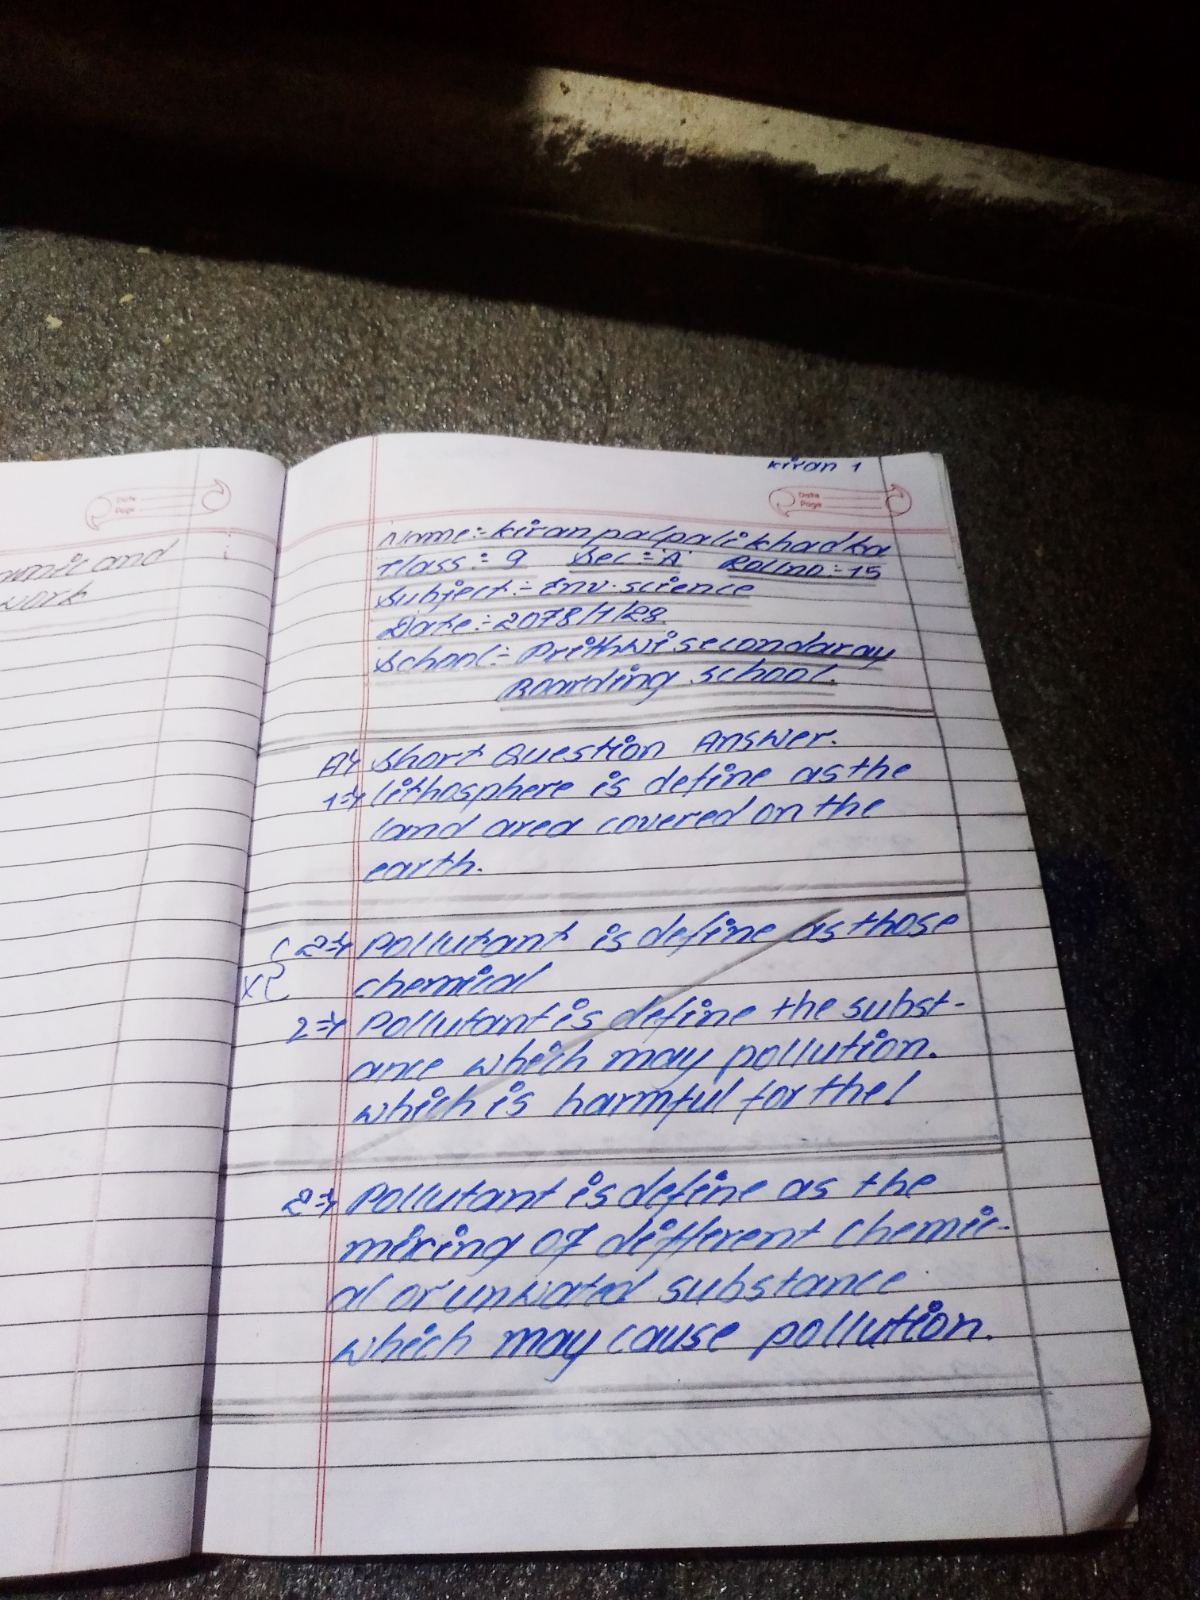 unit and
work
Date
Page
kiran 1
Date
Page
Name:- kiran palpali khadka
Class:- 9 Sec:- 'A' Roll no:- 15
Subject:- Env. science
Date:- 2078/1/28
School:- Prithwi secondaray
Boarding school.
A⇒ Short Question Answer.
1⇒ lithosphere is define as the
land area covered on the
earth.
2⇒ Pollutant is define as those
chemical
2⇒ Pollutant is define the subst-
ance which may pollution.
which is harmful for the l
2⇒ Pollutant is define as the
mixing of different chemic-
al or unwated substance
which may cause pollution.